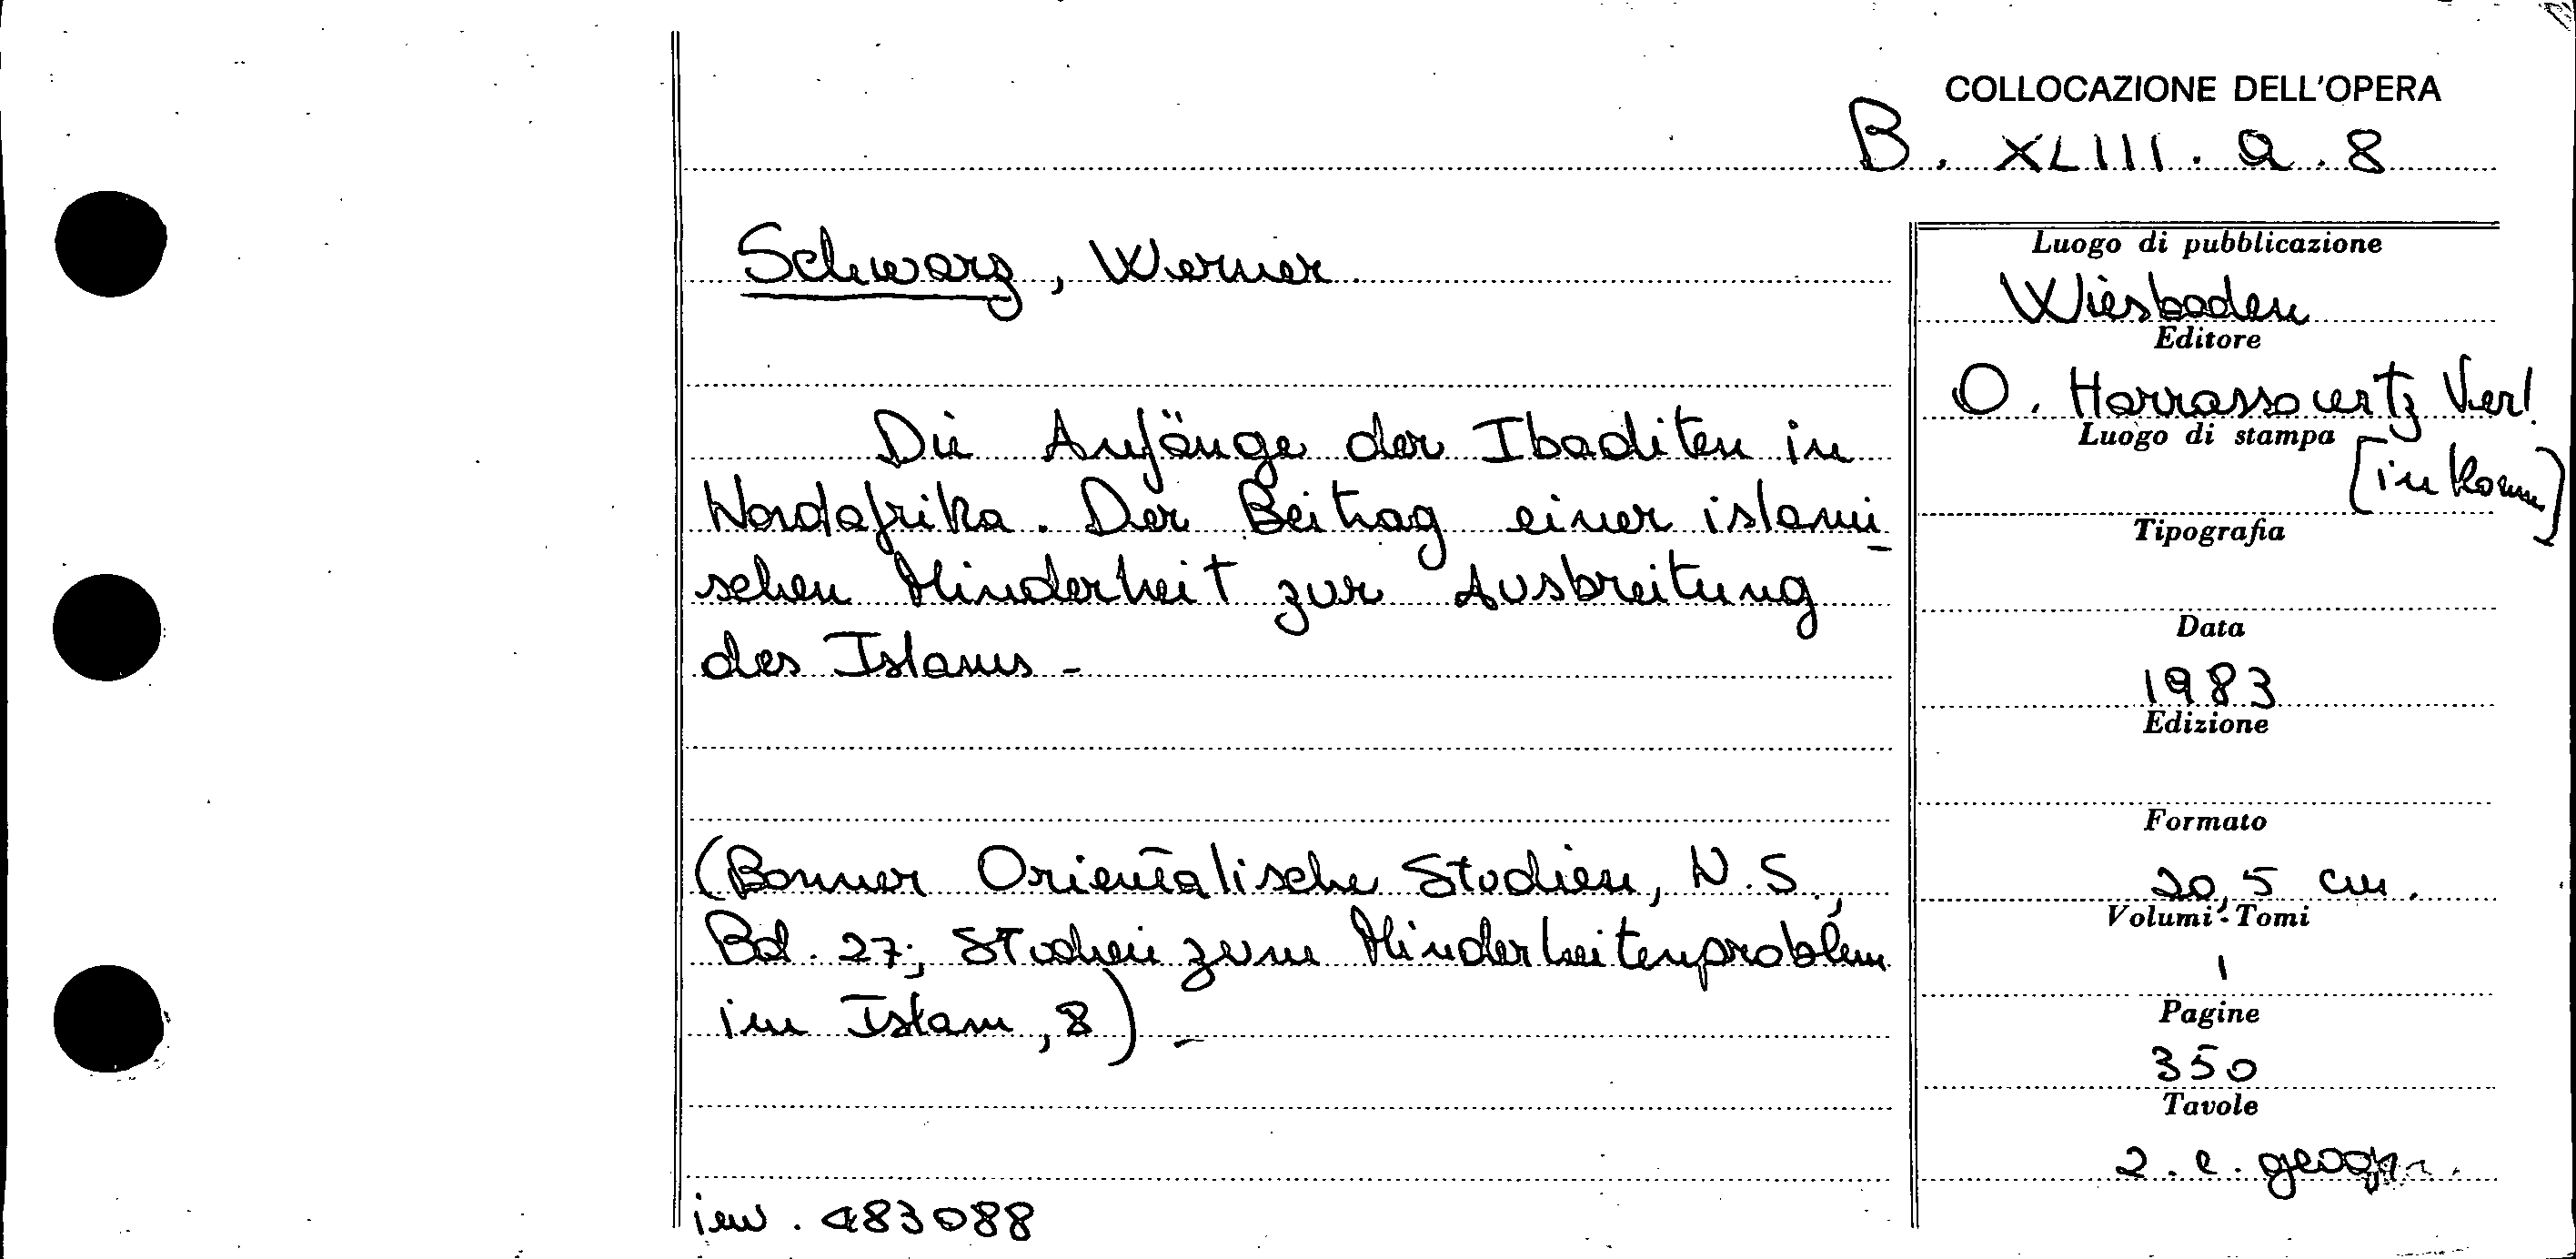 COLLOCAZIONE DELL'OPERA
B. XLIII. a. 8
Schwarz, Werner
Die Anfänge der Ibaditen in
Nordafrika. Der Beitrag einer islami
schen Minderheit zur Ausbreitung
des Islams -
(Bonner Orientalische Studien, N.S.,
Bd. 27; Studien zum Minderheitenproblem
im Islam, 8) -
inv. 483088
Luogo di pubblicazione
Wiesbaden
Editore
O. Harrassowitz Verl.
Luogo di stampa
[in Komm]
Tipografia
Data
1983
Edizione
Formato
20,5 cm.
Volumi - Tomi
1
Pagine
350
Tavole
2. c. geogr.